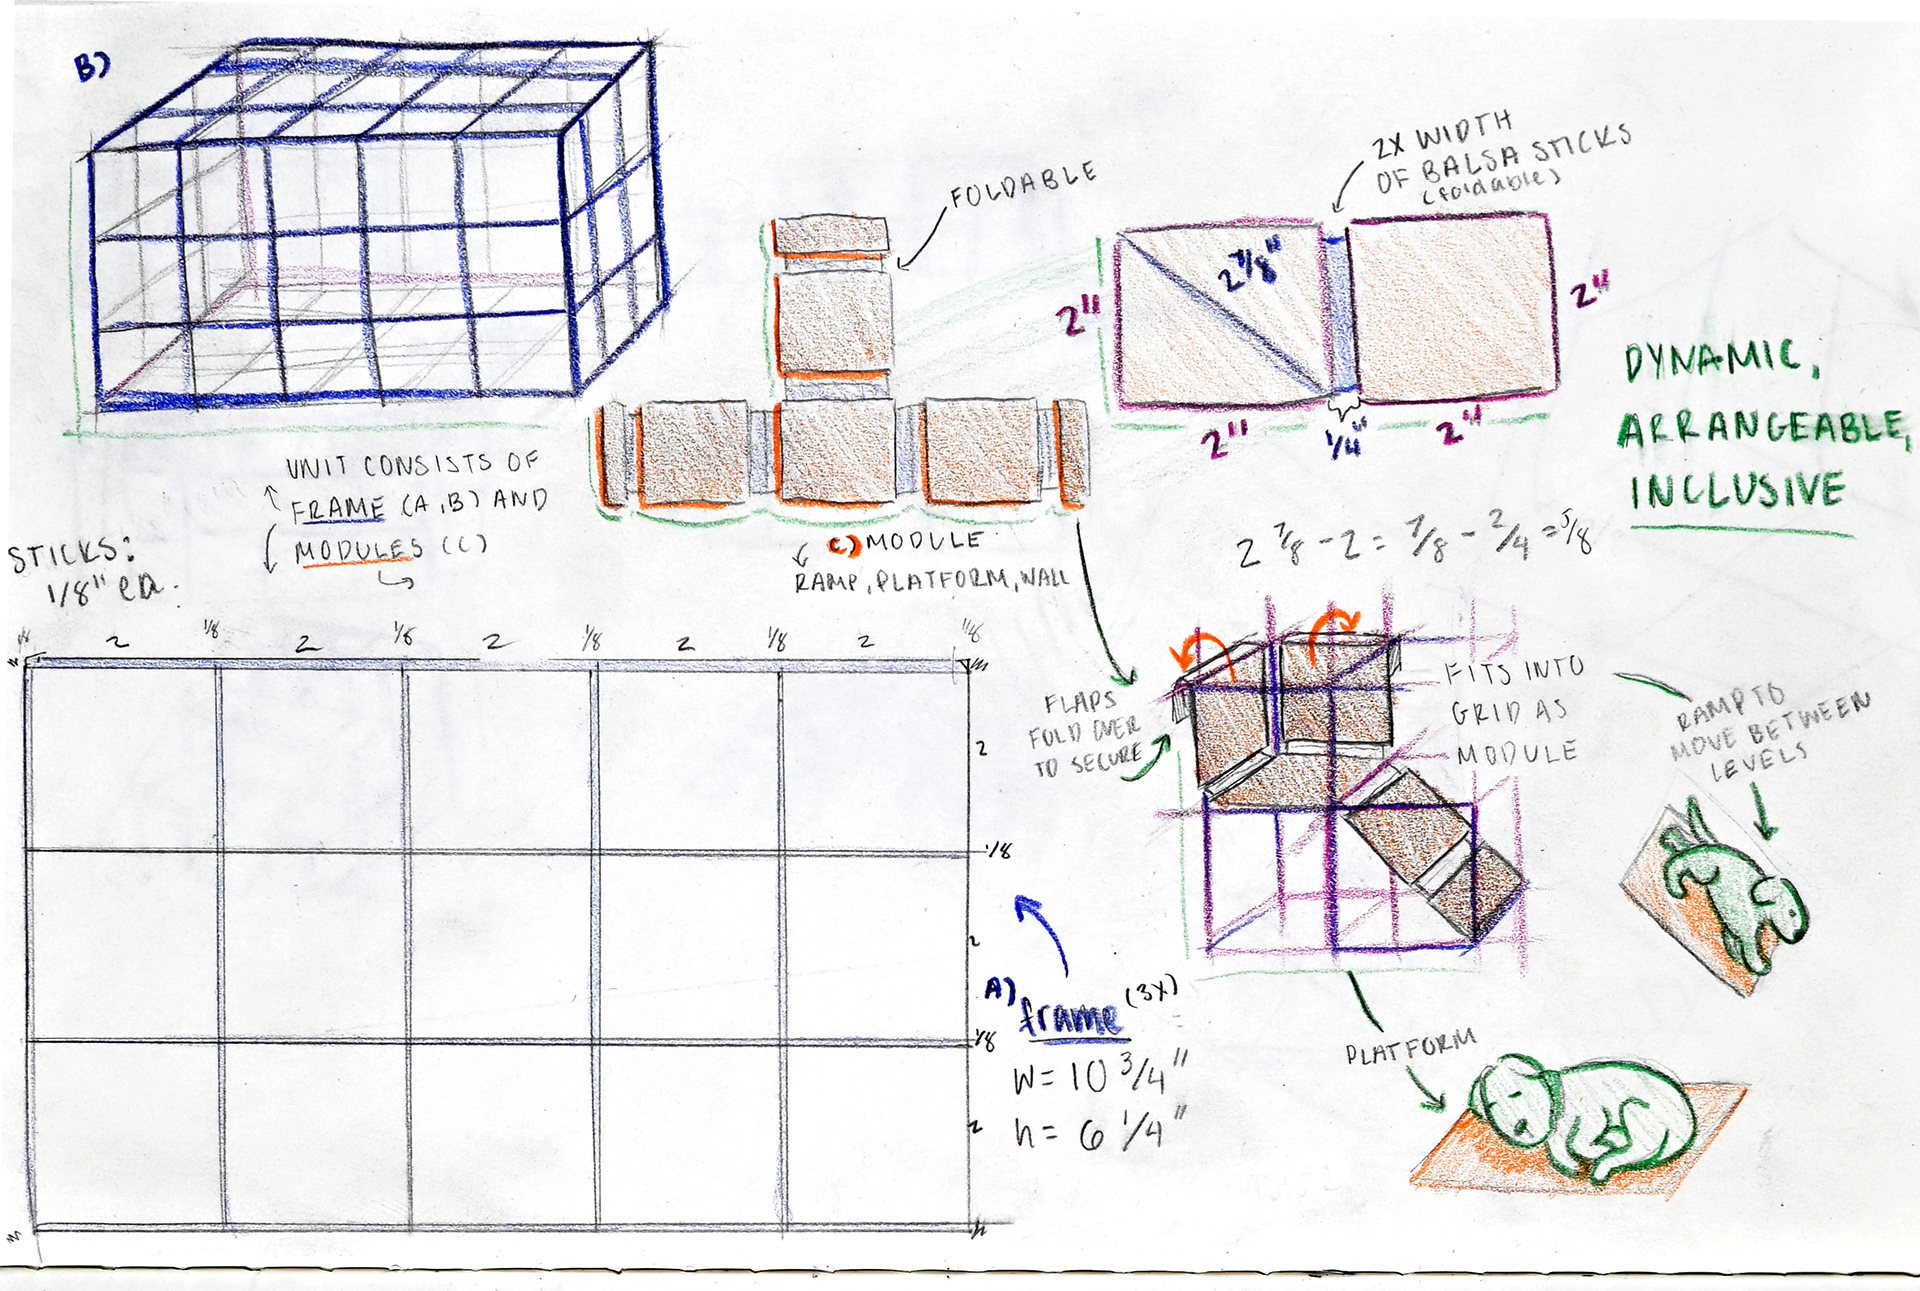 B)
FOLDABLE
2X WIDTH
OF BALSA STICKS
(foldable)
2"
2 7/8"
2"
2"
1/4"
2"
DYNAMIC,
ARRANGEABLE,
INCLUSIVE
UNIT CONSISTS OF
FRAME (A,B) AND
MODULES (C)
STICKS:
1/8" ea.
C) MODULE
RAMP, PLATFORM, WALL
2 7/8 - 2 = 7/8 - 2/4 = 3/8
2 1/8 2 1/8 2 1/8 2 1/8 2 1/8
2
1/8
2
1/8
2
FLAPS
FOLD OVER
TO SECURE
FITS INTO
GRID AS
MODULE
RAMP TO
MOVE BETWEEN
LEVELS
A) frame (3X)
W = 10 3/4"
h = 6 1/4"
PLATFORM